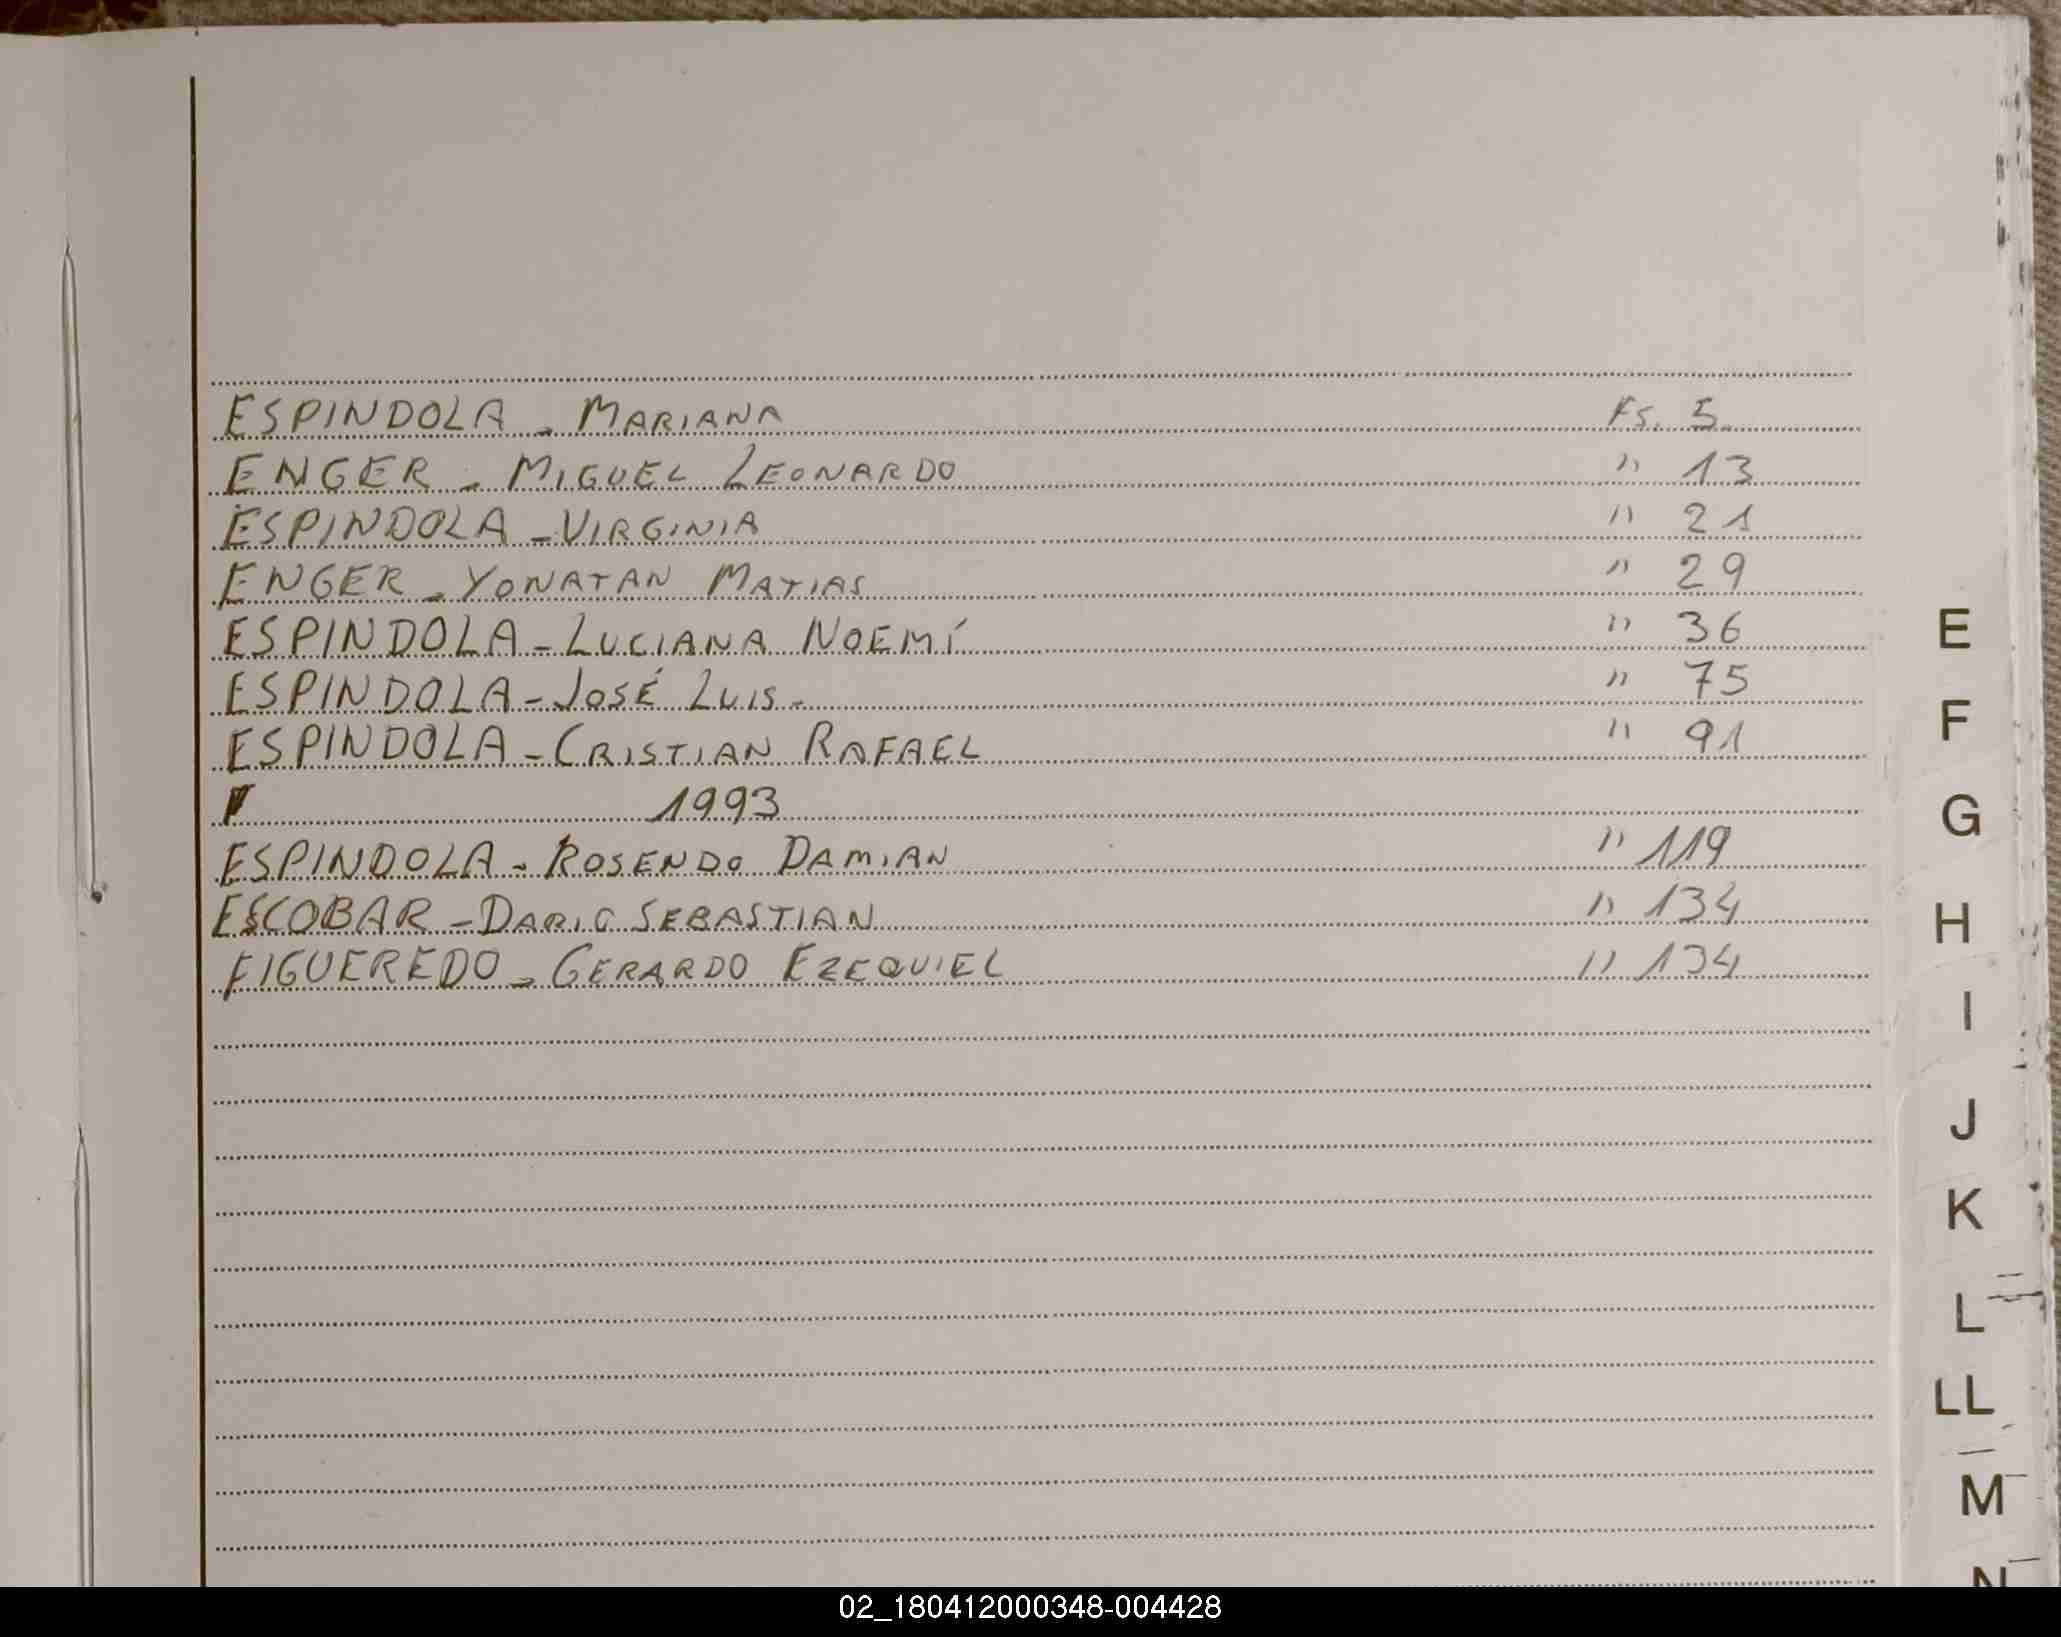 ESPINDOLA - MARIANA Fs. 5.
ENGER - MIGUEL LEONARDO " 13
ESPINDOLA - VIRGINIA " 21
ENGER - YONATAN MATIAS " 29
ESPINDOLA - LUCIANA NOEMÍ " 36
ESPINDOLA - JOSÉ LUIS - " 75
ESPINDOLA - CRISTIAN RAFAEL " 91
1993
ESPINDOLA - ROSENDO DAMIAN " 119
ESCOBAR - DARIO SEBASTIAN " 134
FIGUEREDO - GERARDO EZEQUIEL " 134
E
F
G
H
I
J
K
L
LL
M
N
02_180412000348-004428